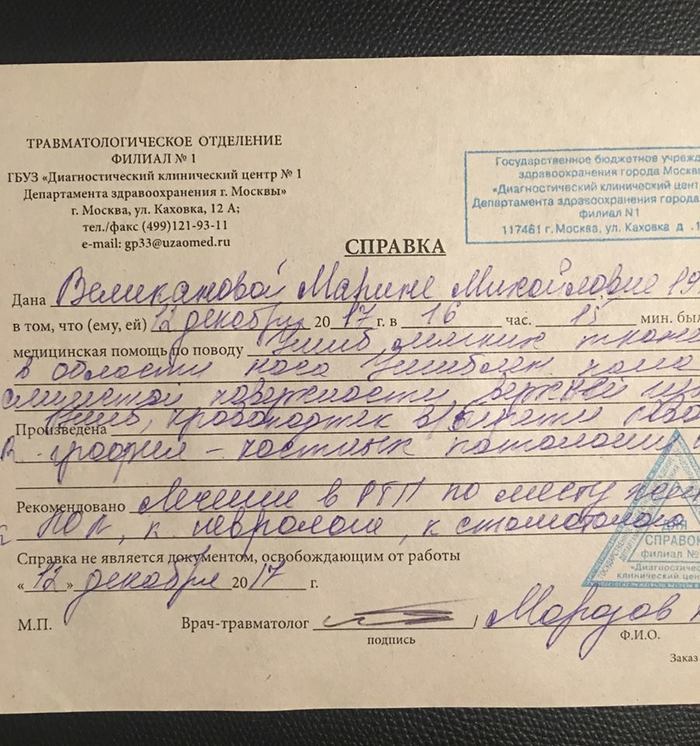 ТРАВМАТОЛОГИЧЕСКОЕ ОТДЕЛЕНИЕ
ФИЛИАЛ № 1
ГБУЗ «Диагностический клинический центр № 1
Департамента здравоохранения г. Москвы»
г. Москва, ул. Каховка, 12 А;
тел./факс (499)121-93-11
e-mail: gp33@uzaomed.ru
Государственное бюджетное учрежд
здравоохранения города Москв
«Диагностический клинический цент
Департамента здравоохранения города
филиал N1
117461 г. Москва, ул. Каховка д .1
СПРАВКА
Дана Великановой Марине Михайловне 19
в том, что (ему, ей) 12 декабря 2017 г. в 16 час. 15 мин. был
медицинская помощь по поводу Ушиб мягких ткан
в области носа Ушибленная рана
слизистой поверхности верхней
Произведена Ушиб, кровоподтек в области
R - графия - костных патологий
Рекомендовано Лечение в РТП по месту
к ЛОР, к неврологу, к стоматологу
Справка не является документом, освобождающим от работы
«12» декабря 2017 г.
ДЛЯ
СПРАВОК
филиал №
«Диагностичес
клинический цен
М.П. Врач-травматолог , Морозов
подпись Ф.И.О.
Заказ